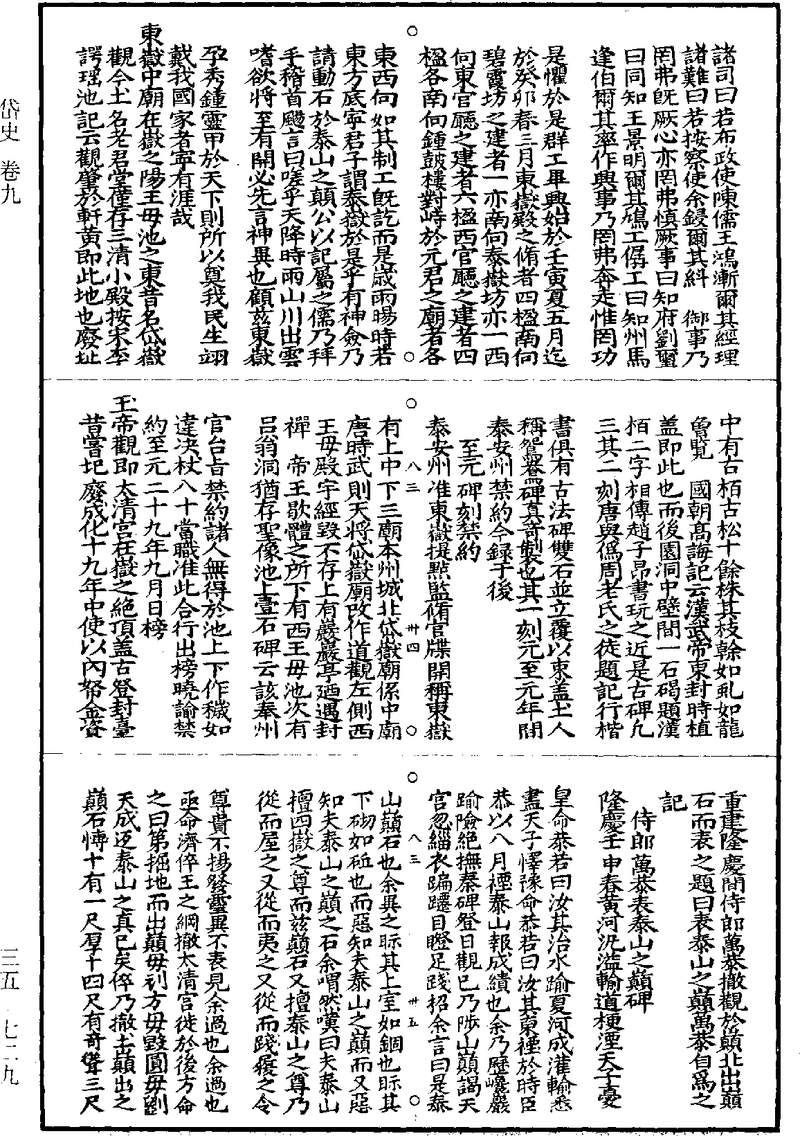 諸司曰若布政使陳儒王鴻漸爾其經理
諸難曰若按察使余鍐爾其糾　御事乃
罔弗旣厥心亦罔弗慎厥事曰知府劉璽
曰同知王景明爾其鳩工僝工曰知州馬
逢伯爾其率作興事乃罔弗奔走惟罔功
是懼於是群工畢興始於壬寅夏五月迄
於癸卯春三月東嶽殿之脩者四楹南向
碧霞坊之建者一亦南向泰嶽坊亦一西
向東官廳之建者六楹西官廳之建者四
楹各南向鍾鼓樓對峙於元君之廟者各
東西向如其制工旣訖而是歲雨暘時若
東方底寧君子謂泰嶽於是乎有神僉乃
請勒石於泰山之巔公以記屬之儒乃拜
手稽首颺言曰嗟乎天降時雨山川出雲
嗜欲將至有開必先言神異也顧兹東嶽
孕秀鍾靈甲於天下則所以奠我民生翊
戴我國家者寧有涯哉
東嶽中廟在嶽之陽王母池之東昔名岱嶽
觀今土名老君堂僅存三清小殿按宋李
諤瑶池記云觀肇於軒黃即此地也廢址
中有古栢古松十餘株其枝榦如虬如龍
魯覽　國朝高誨記云漢武帝東封時植
盖即此也而後園洞中壁間一石碣題漢
栢二字相傳趙子昂書玩之近是古碑凡
三其二刻唐與偽周老氏之徒題記行楷
書俱有古法碑雙石並立覆以束盖土人
稱鴛鴦碑真奇製也其一刻元至元年間
泰安州禁約今録于後
至元碑刻禁約
泰安州准東嶽提點監脩官牒開稱東嶽
有上中下三廟本州城北岱嶽廟係中廟
唐時武則天將岱嶽廟改作道觀左側西
王母殿宇經毀不存上有巖巖亭廼遇封
禪　帝王歇體之所下有西王母池次有
呂翁洞猶存聖像池上臺石碑云該奉州
官台旨禁約諸人無得於池上下作穢如
違决杖八十當職准此合行出榜曉諭禁
約至元二十九年九月日榜
玉帝觀即太清宮在嶽之絶頂盖古登封臺
昔嘗圮廢成化十九年中使以內帑金資
重建隆慶間侍郎萬恭撤觀於巔北出巔
石而表之題曰表泰山之巔萬恭自爲之
記
侍郎萬恭表泰山之巔碑
隆慶壬申春黃河汎溢輸道梗湮天子憂
皇命恭若曰汝其治水踰夏河成灌輸悉
盡天子懌豫命恭若曰汝其䄠禋於時臣
恭以八月禋泰山報成績也余乃歷巉巖
踰險絶撫秦碑登日觀已乃陟山巔謁天
宮忽緇衣踰躚目瞪足踐招余言曰是泰
山巔石也余異之眎其上室如錮也眎其
下砌如砥也而惡知夫泰山之巔而又惡
知夫泰山之巔之石余喟然嘆曰夫泰山
擅四嶽之尊而兹巔石又擅泰山之尊乃
從而屋之又從而夷之又從而踐履之令
尊貴不揚發靈異不表見余過也余過也
亟命濟倅王之綱撤太清宮徙於後方命
之曰第掘地而出巔毋刓方毋毀圓毋劖
天成返泰山之真已矣倅乃撤土巔出之
巔石慱十有一尺厚十四尺有奇聳三尺
岱史 卷九
三五 七二九
八三
卅四
八三
卅五